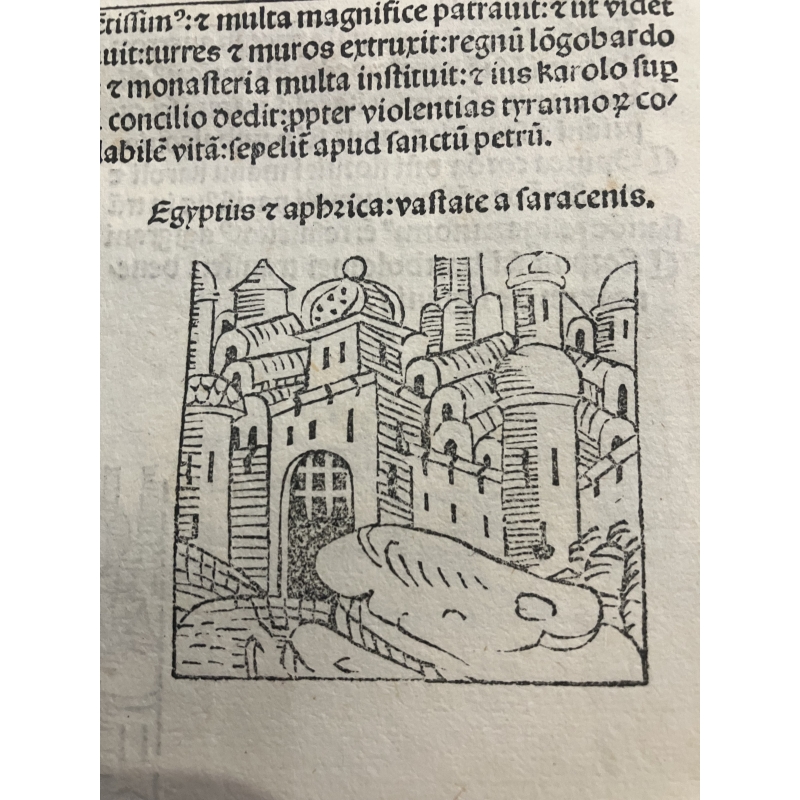 ctissimꝰ: ⁊ multa magnifice patrauit: ⁊ ut videt
uit: turres ⁊ muros extruxit: regnū lōgobardo
⁊ monasteria multa instituit: ⁊ ius Karolo sup̲
concilio dedit: ꝓpter violentias tyrannoꝝ co/
labilē vitā: sepelit̄ apud sanctū petrū.
Egyptus ⁊ aphrica: vastate a saracenis.